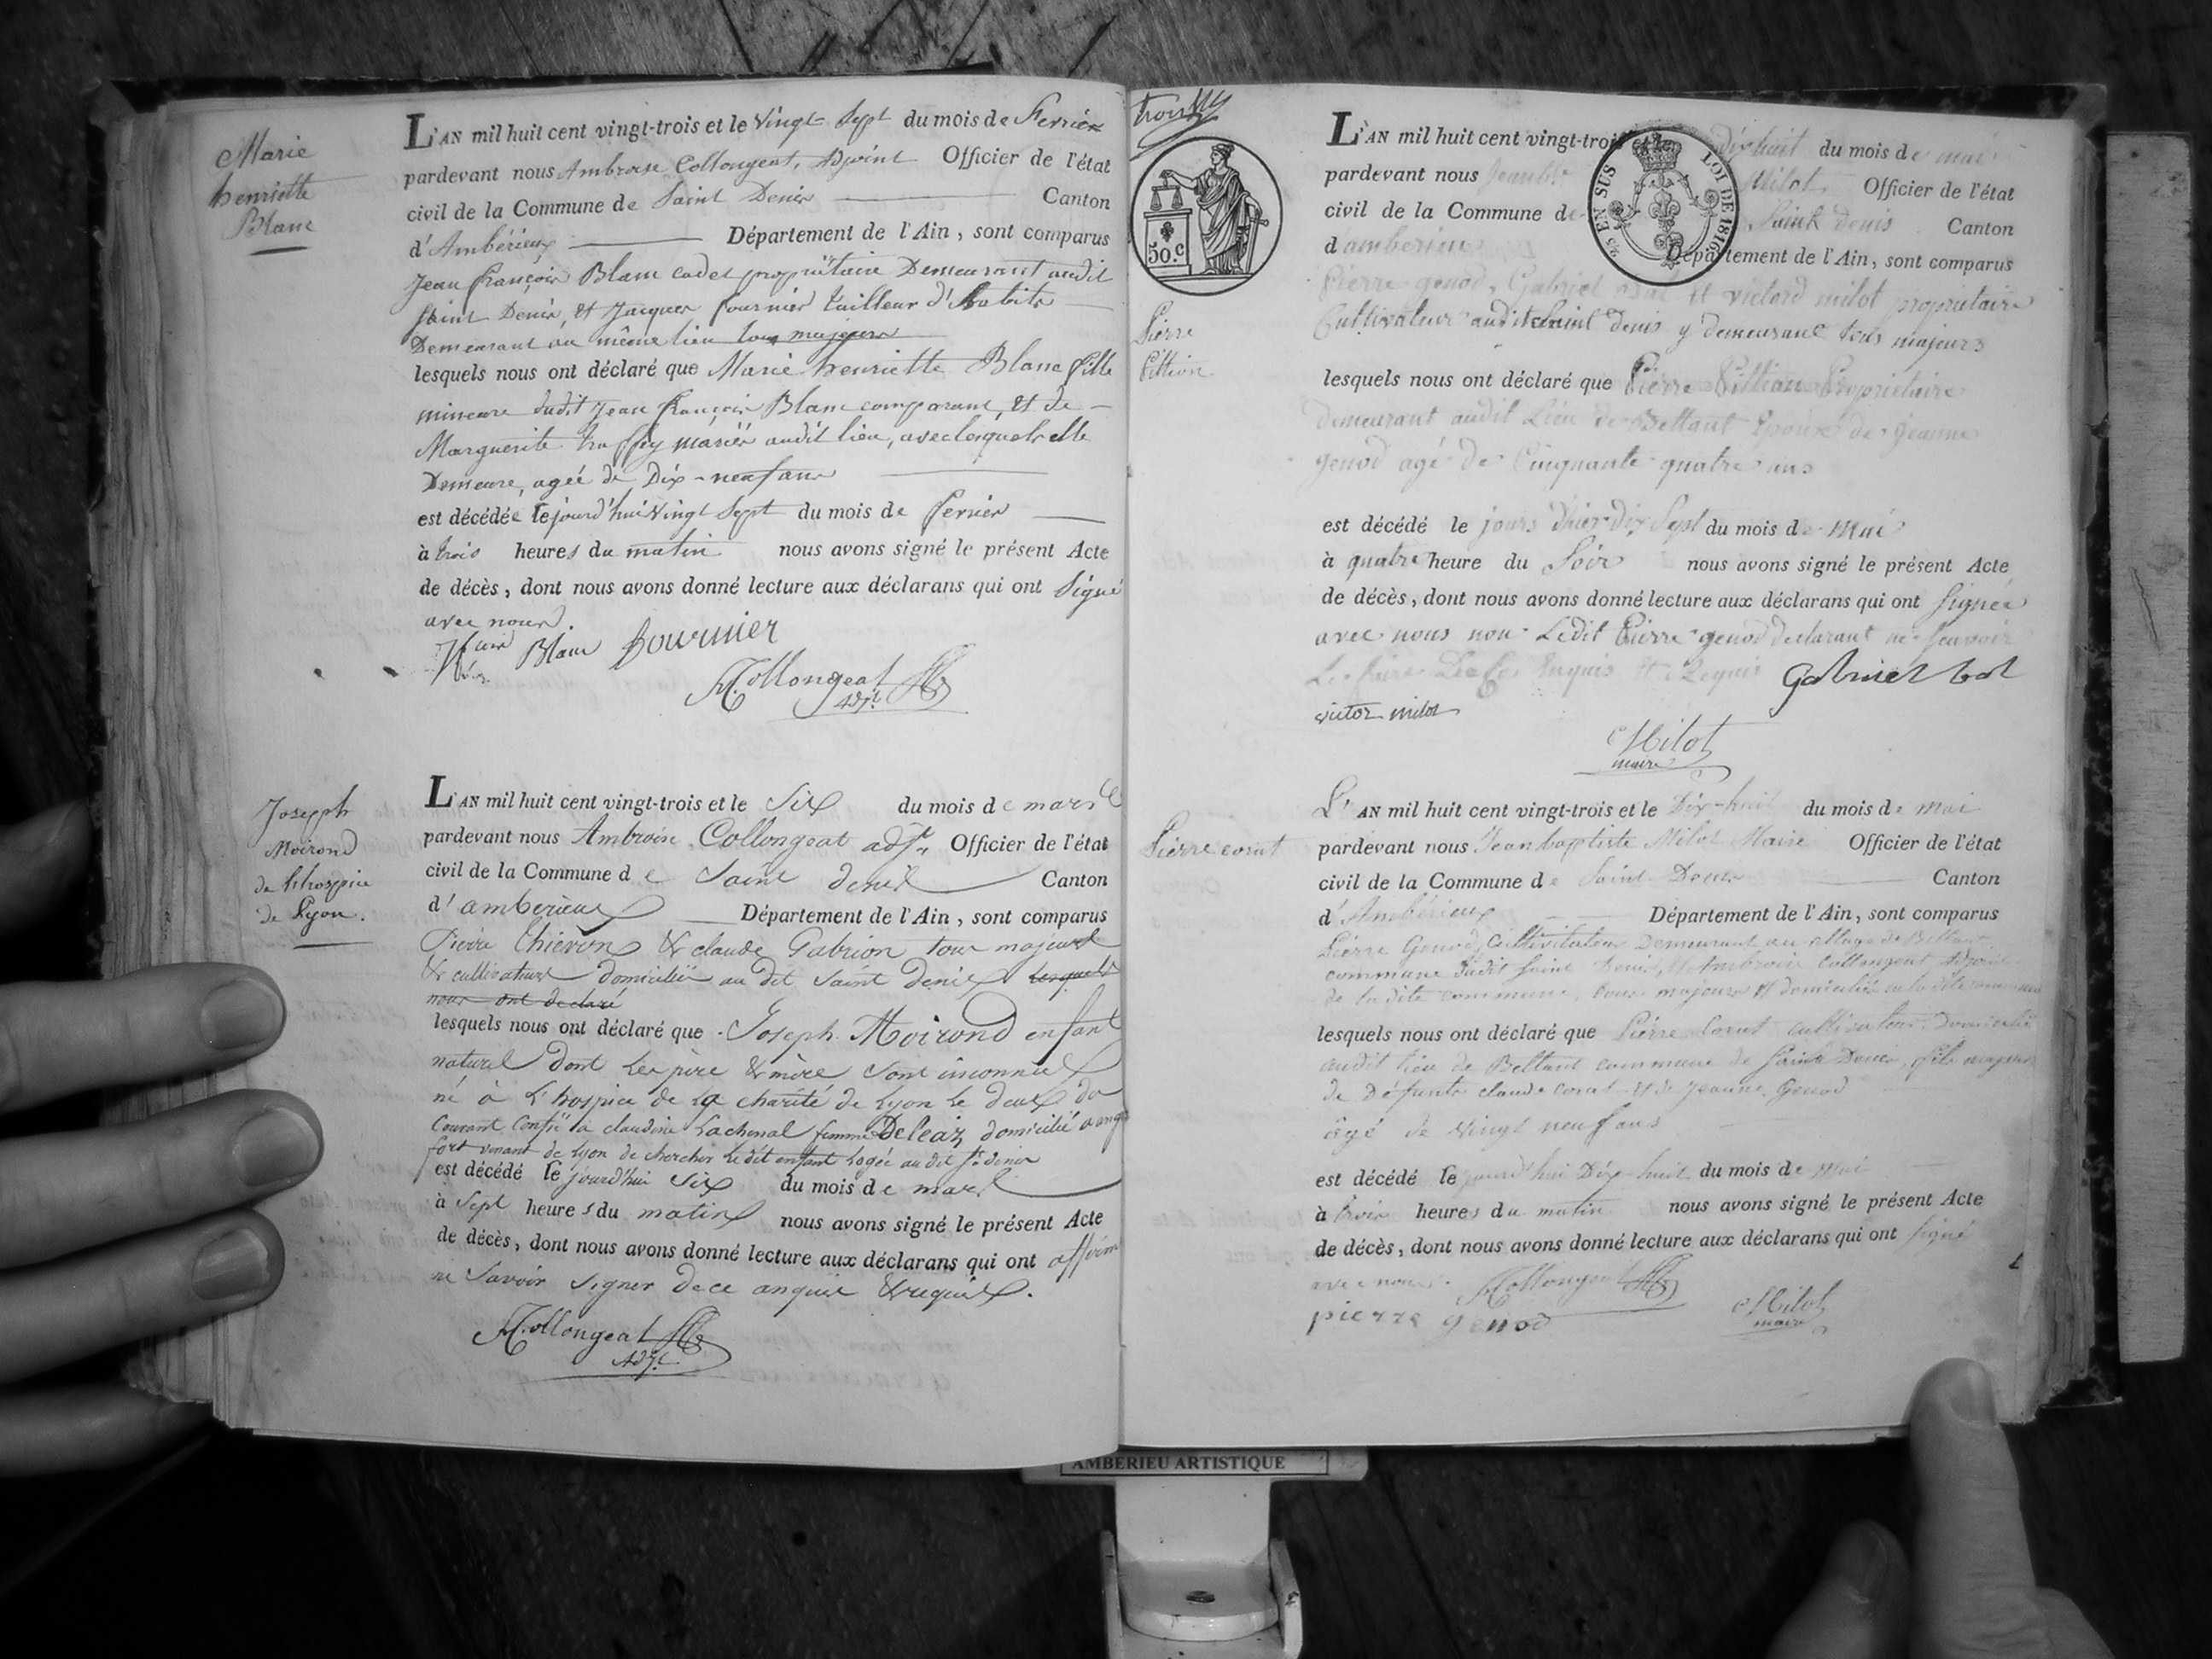 Marie
henriette
Blanc
L'AN mil huit cent vingt-trois et le vingt Sept du mois de Fevrier
pardevant nous Ambroise Collongeat, adjoint Officier de l'état
civil de la Commune de Saint Denis Canton
d'Ambérieux Département de l'Ain, sont comparus
Jean françois Blanc cadet propriétaire Demeurant audit
Saint Denis, et Jacques fournier tailleur d'habits
Demeurant au même lieu tous majeurs
lesquels nous ont déclaré que Marie henriette Blanc fille
mineure dudit Jean françois Blanc comparant, et de
Marguerite mariés audit lieu, avec lesquels elle
Demeure, agée de Dix-neuf ans
est décédée le jourd'hui vingt Sept du mois de fevrier
à trois heures du matin nous avons signé le présent Acte
de décès, dont nous avons donné lecture aux déclarans qui ont Signé
avec nous.
Blanc fournier
A. Collongeat
Adj.t
Joseph
Moirond
de l'hospice
de Lyon.
L'AN mil huit cent vingt-trois et le Six du mois de mars
pardevant nous Ambroise Collongeat adj.t Officier de l'état
civil de la Commune de Saint denis Canton
d'amberieux Département de l'Ain, sont comparus
Pierre Chieron & claude Gabrion tous majeurs
& cultivateurs domiciliés au dit Saint denis lesquels
nous ont déclaré
lesquels nous ont déclaré que Joseph Moirond enfant
naturel dont les père & mère sont inconnus
né à L'hospice de la charité de Lyon le deux du
Courant Confié a claudine Lachenal femme Deleaz domicilié a
fort venant de Lyon de chercher Ledit enfant Logée au dit St denis
est décédé le jourd'hui Six du mois de mars
à Sept heures du matin nous avons signé le présent Acte
de décès, dont nous avons donné lecture aux déclarans qui ont
ne Savoir Signer de ce enquis & requis.
A. Collongeat
Adj.t
trois
50.C
Pierre
Pittion
25 EN SUS LOI DE 1816
L'AN mil huit cent vingt-trois et le dix huit du mois de mai
pardevant nous Jean b.te Milot Officier de l'état
civil de la Commune de Saint denis Canton
d'amberieu Département de l'Ain, sont comparus
Pierre genod, Gabriel et victord milot propriétaire
Cultivateur audit Saint Denis y demeurant tous majeurs
lesquels nous ont déclaré que Pierre Pittion Propriétaire
demeurant audit Lieu de Bettant Epoux de Jeanne
genod agé de Cinquante quatre ans
est décédé le jours d'hier dix Sept du mois de mai
à quatre heure du Soir nous avons signé le présent Acte
de décès, dont nous avons donné lecture aux déclarans qui ont Signée
avec nous non Ledit Pierre genod declarant ne Savoir
Le faire De Ce Enquis et Requis Gabriel bol
victor milot
Milot
maire
Pierre corut
L'AN mil huit cent vingt-trois et le Dix-huit du mois de mai
pardevant nous Jean baptiste Milot Maire Officier de l'état
civil de la Commune de Saint Denis Canton
d'Ambérieux Département de l'Ain, sont comparus
Pierre Genod, Cultivateur Demeurant au village de Bettant
commune dudit Saint Denis, et Ambroise Collongeat Adjoint
de la dite commune, tous majeurs et domiciliés en la dite commune
lesquels nous ont déclaré que Pierre Corut cultivateur Domicilié
audit lieu de Bettant commune de Saint Denis, fils majeur
de Défunts claude corut et de Jeanne Genod
âgé de vingt neuf ans
est décédé le jourd'hui Dix-huit du mois de mai
à trois heures du matin nous avons signé le présent Acte
de décès, dont nous avons donné lecture aux déclarans qui ont signé
avec nous. A. Collongeat
pierre genod
Milot
maire
AMBERIEU ARTISTIQUE